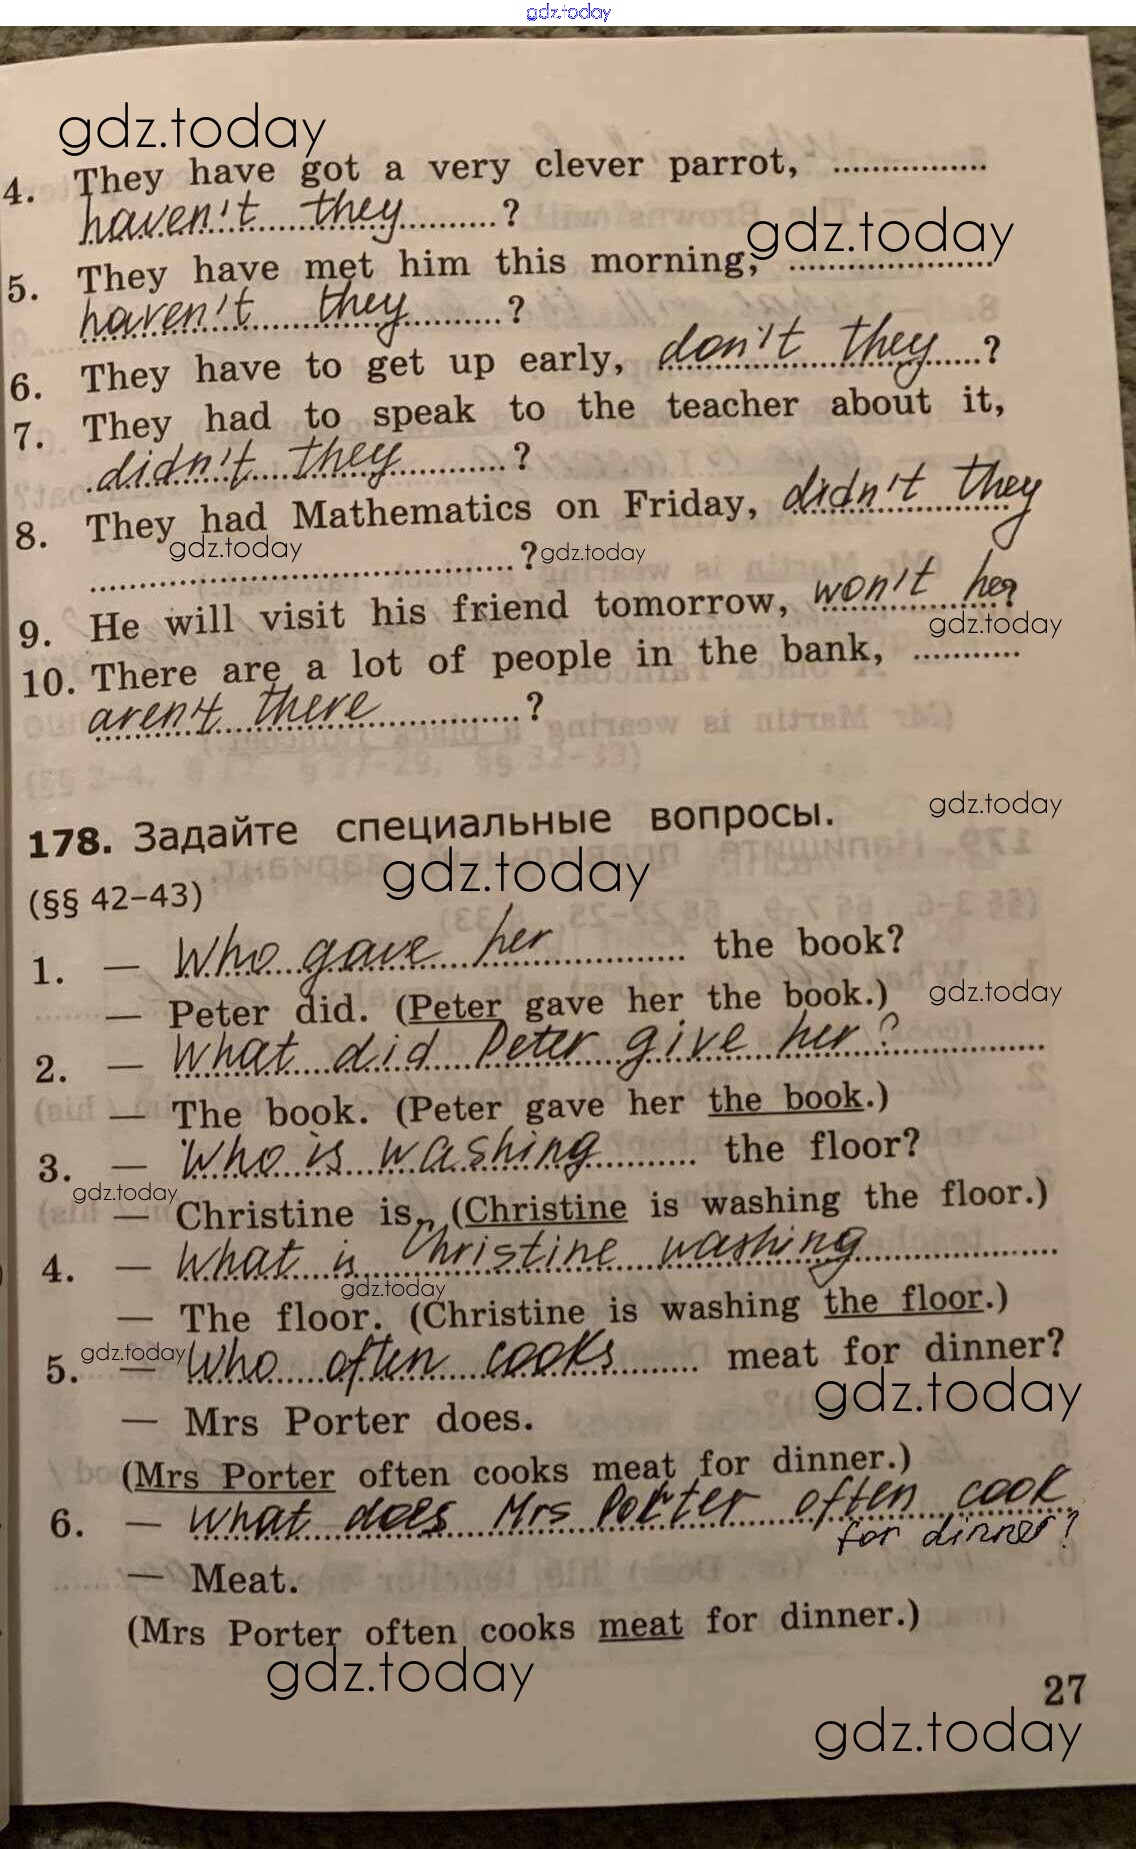 gdz.today
gdz.today
4. They have got a very clever parrot, ................
haven't they ?
gdz.today
5. They have met him this morning, ......................
haven't they ?
6. They have to get up early, don't they ?
7. They had to speak to the teacher about it,
didn't they ?
8. They had Mathematics on Friday, didn't they
gdz.today ? gdz.today
9. He will visit his friend tomorrow, won't he?
gdz.today
10. There are a lot of people in the bank, ...........
aren't there ?
gdz.today
178. Задайте специальные вопросы.
gdz.today
(§§ 42–43)
1. — Who gave her the book?
— Peter did. (Peter gave her the book.) gdz.today
2. — What did Peter give her?
— The book. (Peter gave her the book.)
3. — Who is washing the floor?
gdz.today
— Christine is. (Christine is washing the floor.)
4. — What is Christine washing
gdz.today
— The floor. (Christine is washing the floor.)
gdz.today
5. — Who often cooks meat for dinner?
gdz.today
— Mrs Porter does.
(Mrs Porter often cooks meat for dinner.)
6. — What does Mrs Porter often cook
for dinner?
— Meat.
(Mrs Porter often cooks meat for dinner.)
gdz.today
27
gdz.today